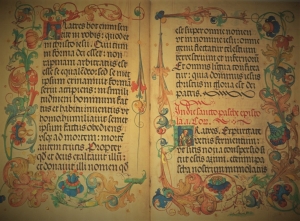 Fratres hoc enim senti
te in vobis: quod et
in christo iesu. Qui cum
in forma dei esset: non
rapinam arbitratus est
esse se equalem deo sed semet
ipsum exinanivit formam
servi accipiens: in simili
tudinem hominum fact
et habitu inventus ut
homo humiliavit semet
ipsum factus obediens
usq ad mortem: mortem
autem crucis. Propter
qd et deus exaltavit illum: et
donavit illi nomen qd
est super omne nomen
ut in nomine iesu: omne
genu flectatur celestium
terrestrium et infernorum
Et omnis lingua confitea
tur: quia dominus iesus
christus in gloria est dei
patris.
In die sancto pasce episto
la ad Cor.
Fratres. Expurgate
vetus fermentum: ut
sitis nova conspersio si
cut estis azimi. etenim pa
scha nostrum immolatus